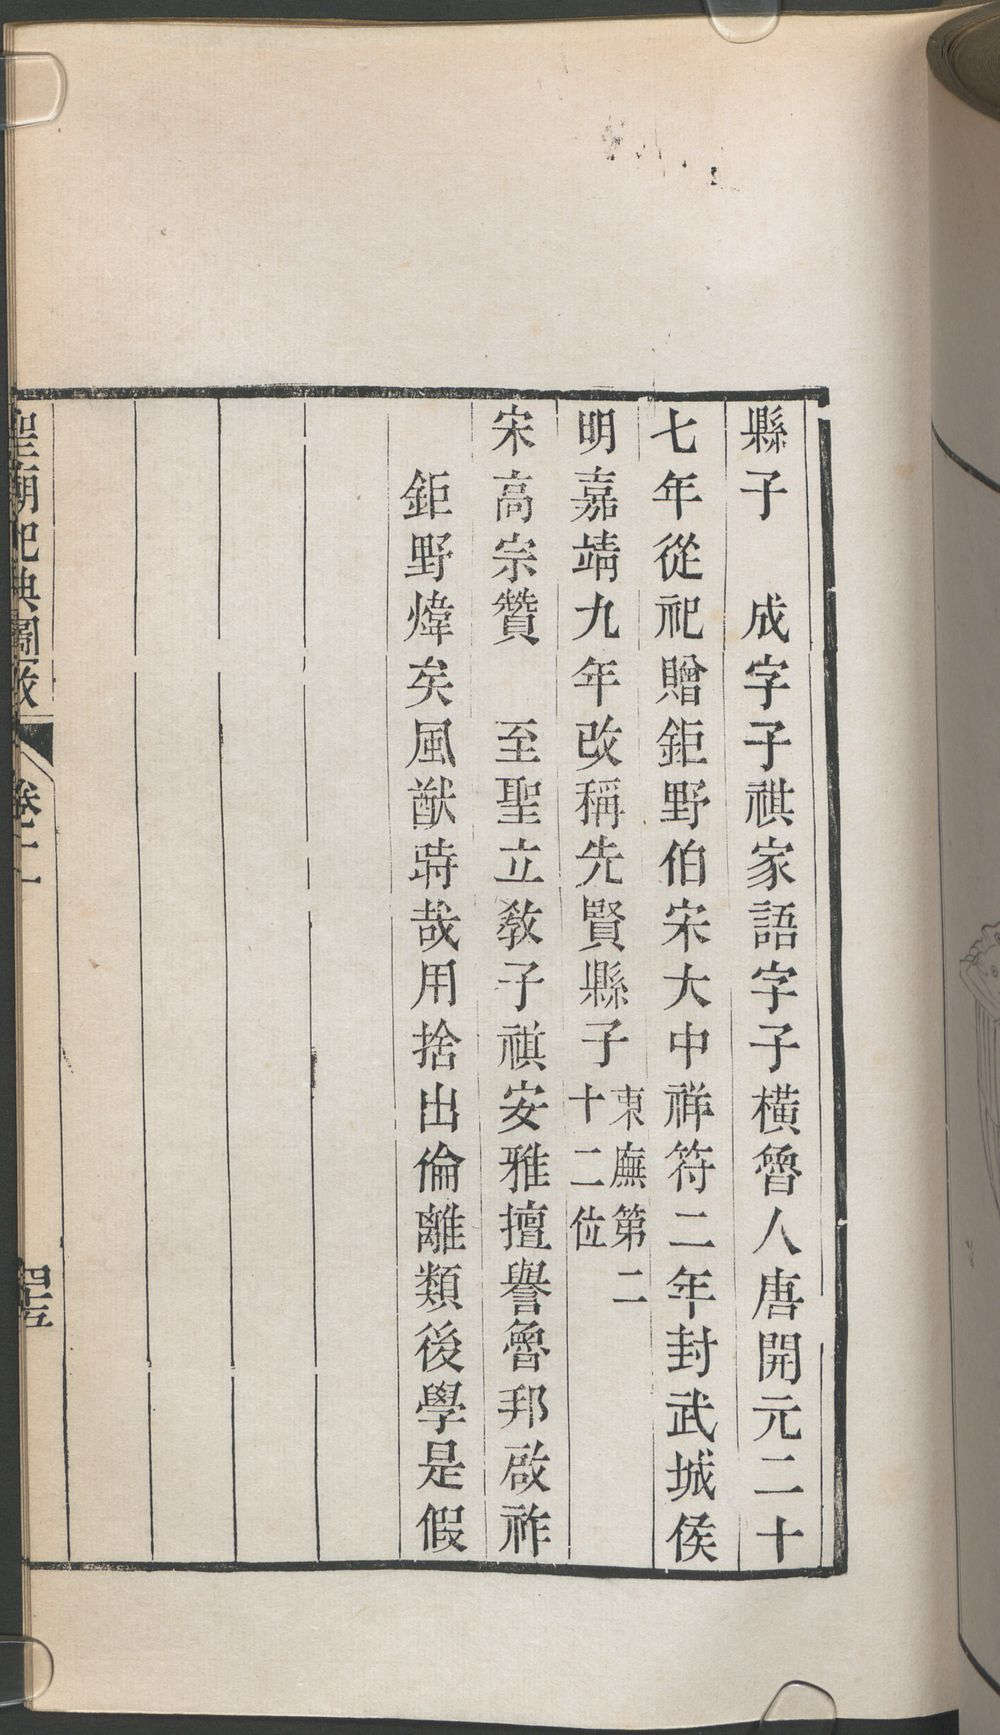 縣子　成字子祺家語字子橫魯人唐開元二十
七年從祀贈鉅野伯宋大中祥符二年封武城侯
明嘉靖九年改稱先賢縣子
東廡第二
十二位
宋高宗贊　至聖立教子祺安雅擅譽魯邦啟祚
鉅野煒矣風猷時哉用捨出倫離類後學是假
聖廟祀典圖攷
卷二